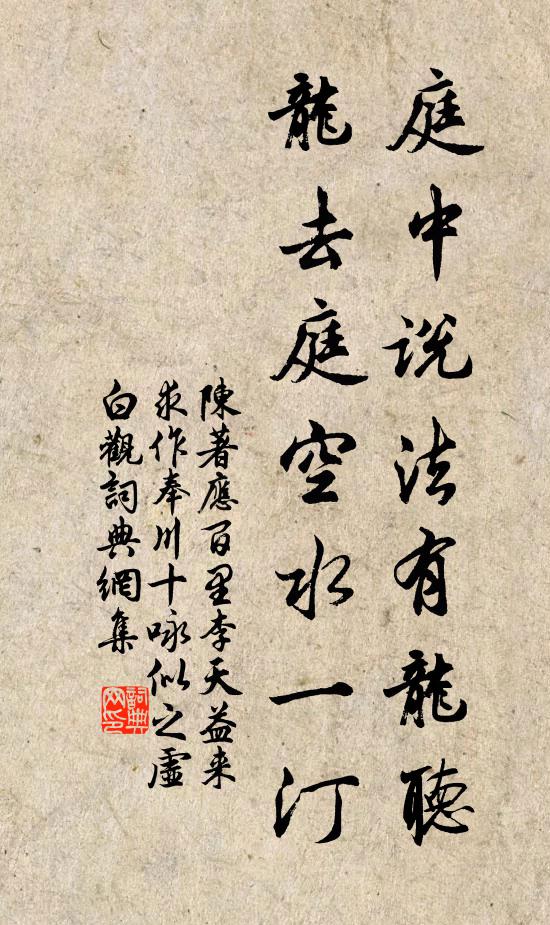 庭中说法有龍聽
龍去庭空水一汀
陳著應百里李天益来
求作奉川十咏似之虛
白觀詞典網集
詞典網印